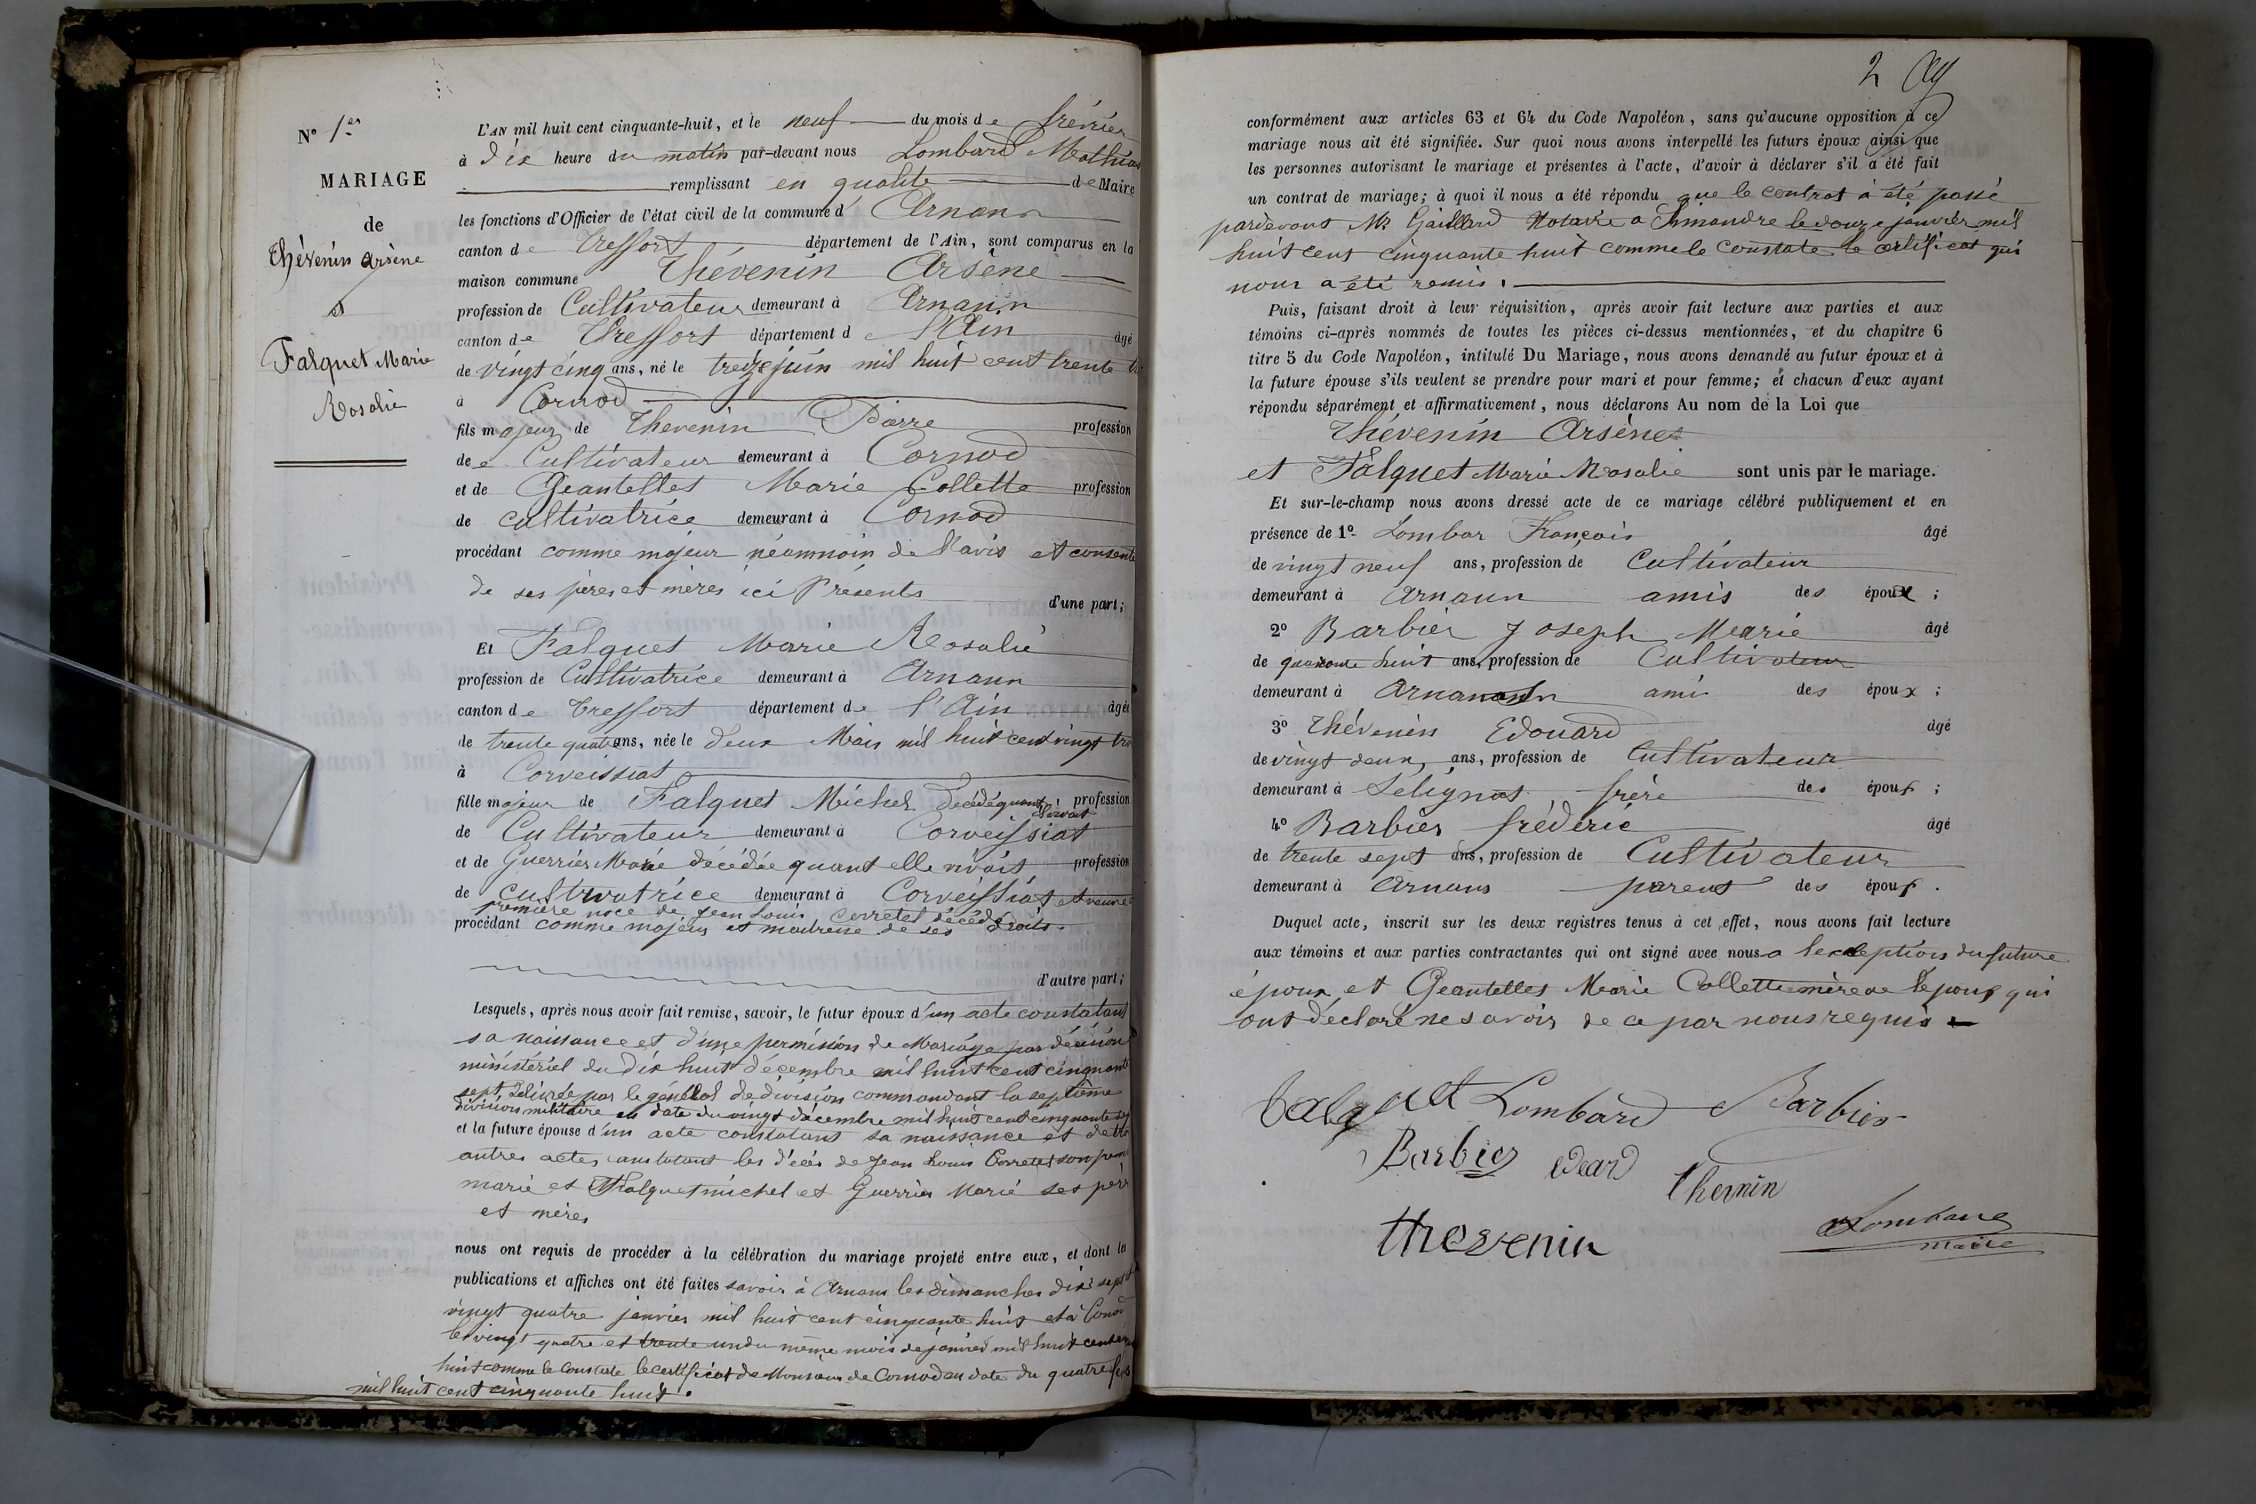 N° 1er
MARIAGE
de
Thévenin Arsène
&
Falquet Marie
Rosalie
L'AN mil huit cent cinquante-huit, et le neuf du mois de février
à dix heure du matin par-devant nous Lombard Mathias
remplissant en qualité de Maire
les fonctions d'Officier de l'état civil de la commune d Arnans
canton de Treffort département de l'Ain, sont comparus en la
maison commune Thévenin Arsène
profession de Cultivateur demeurant à Arnans
canton de Treffort département de l'Ain âgé
de vingt cinq ans, né le treize juin mil huit cent trente
à Cornod
fils majeur de Thevenin Pierre profession
de Cultivateur demeurant à Cornod
et de Geantelles Marie Collette profession
de cultivatrice demeurant à Cornod
procédant comme majeur néomnoin de l'avis et consente
de ses pères et mères ici Présents d'une part;
Et Falquet Marie Rosalie
profession de Cultivatrice demeurant à Arnans
canton de Treffort département de l'Ain âgée
de trente quatre ans, née le deux Mais mil huit cent vingt
à Corveissiat
fille majeur de Falquet Michel décédé quant vivait profession
de Cultivateur demeurant à Corveissiat
et de Guerrier Marie décédée quant elle vivait profession
de cultivatrice demeurant à Corveissiat et veuve
première noce de Jean Louis Corretet décédé
procédant comme majeur et maitresse de ses droits.
d'autre part;
Lesquels, après nous avoir fait remise, savoir, le futur époux d'un acte constatant
sa naissance et d'une permission de Mariage par décision
ministériel du dix huit décembre mil huit cent cinquante
sept délivrée par le général de division commandant la septième
division militaire en date du vingt décembre mil huit cent cinquante sept
et la future épouse d'un acte constatant sa naissance et de
autres actes constatant les décès de Jean Louis Corretet son
marie et Falquet michel et Guerrier Marie ses père
et mères
nous ont requis de procéder à la célébration du mariage projeté entre eux, et dont la
publications et affiches ont été faites savoir à Arnans les dimanches dix sept
vingt quatre janvier mil huit cent cinquante huit et à Cornod
les vingt quatre et trente un du même mois de janvier mil huit cent
huit comme le constate le certificat de Monsieur de Cornod en date du quatre
mil huit cent cinquante huit.
2
conformément aux articles 63 et 64 du Code Napoléon, sans qu'aucune opposition à ce
mariage nous ait été signifiée. Sur quoi nous avons interpellé les futurs époux ainsi que
les personnes autorisant le mariage et présentes à l'acte, d'avoir à déclarer s'il a été fait
un contrat de mariage; à quoi il nous a été répondu que le contrat à été passé
pardevant Me Gaillard Notaire a Simandre le douze janvier mil
huit cent cinquante huit comme le constate le certificat qui
nous a été remis.
Puis, faisant droit à leur réquisition, après avoir fait lecture aux parties et aux
témoins ci-après nommés de toutes les pièces ci-dessus mentionnées, et du chapitre 6
titre 5 du Code Napoléon, intitulé Du Mariage, nous avons demandé au futur époux et à
la future épouse s'ils veulent se prendre pour mari et pour femme; et chacun d'eux ayant
répondu séparément et affirmativement, nous déclarons Au nom de la Loi que
Thévenin Arsène
et Falquet Marie Rosalie sont unis par le mariage.
Et sur-le-champ nous avons dressé acte de ce mariage célébré publiquement et en
présence de 1° Lombar François âgé
de vingt neuf ans, profession de Cultivateur
demeurant à Arnans amis des époux ;
2° Barbier Joseph Marie âgé
de quarante huit ans, profession de Cultivateur
demeurant à Arnans ami des époux ;
3° Thévenin Edouard âgé
de vingt deux ans, profession de Cultivateur
demeurant à Sélignat frère des époux ;
4° Barbier fréderic âgé
de trente sept ans, profession de Cultivateur
demeurant à Arnans parent des époux .
Duquel acte, inscrit sur les deux registres tenus à cet effet, nous avons fait lecture
aux témoins et aux parties contractantes qui ont signé avec nous a l'exception du future
époux et Geantelles Marie Collette mère de l'époux qui
ont déclaré ne savoir de ce par nous requis
Falquet Lombard Barbier
Barbier edeard Thevnin
thevenin
Lombard
maire